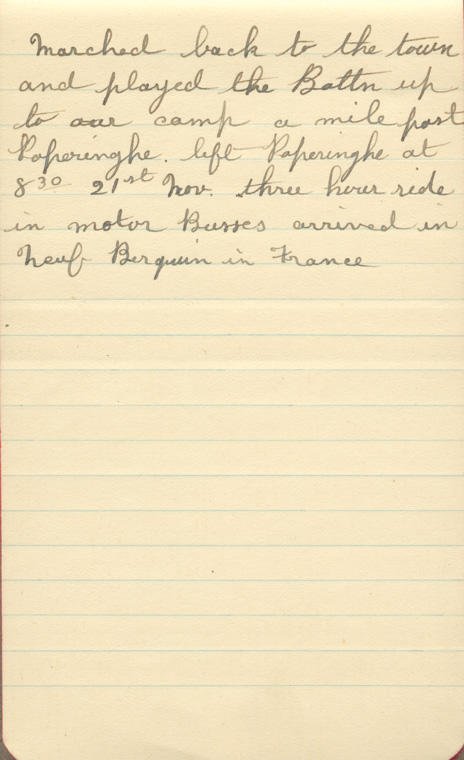 Marched back to the town
and played the Battn up
to our camp a mile past
Poperinghe. left Poperinghe at
8 30 21st Nov. three hour ride
in motor Busses arrived in
Neuf Berquin in France